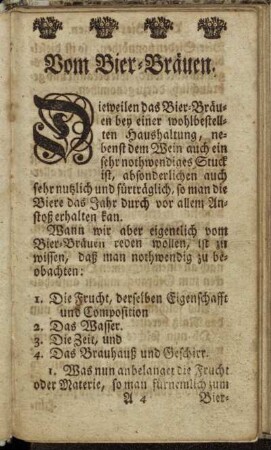 Vom Bier-Bräuen.
Dieweilen das Bier-Bräu-
en bey einer wohlbestell-
ten Haushaltung, ne-
benst dem Wein auch ein
sehr nothwendiges Stuck
ist, absonderlichen auch
sehr nutzlich und fürträglich, so man die
Biere das Jahr durch vor allem An-
stoß erhalten kan.
Wann wir aber eigentlich vom
Bier-Bräuen reden wollen, ist zu
wissen, daß man nothwendig zu be-
obachten:
1. Die Frucht, derselben Eigenschafft
und Composition
2. Das Wasser.
3. Die Zeit, und
4. Das Brauhauß und Geschirr.
1. Was nun anbelanget die Frucht
oder Materie, so man fürnemlich zum
A 4 Bier-